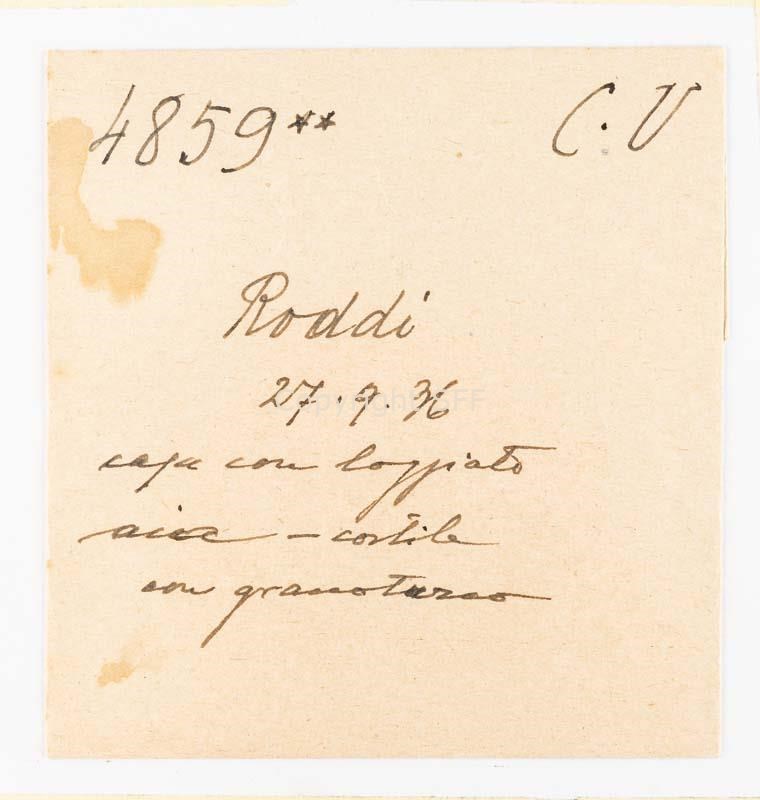 4859** C.V
Roddi
27.9.36
casa con loggiato
aia - cortile
con granoturco